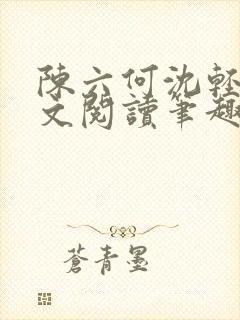 陳六何沈輕
文閱讀筆趣
蒼青墨